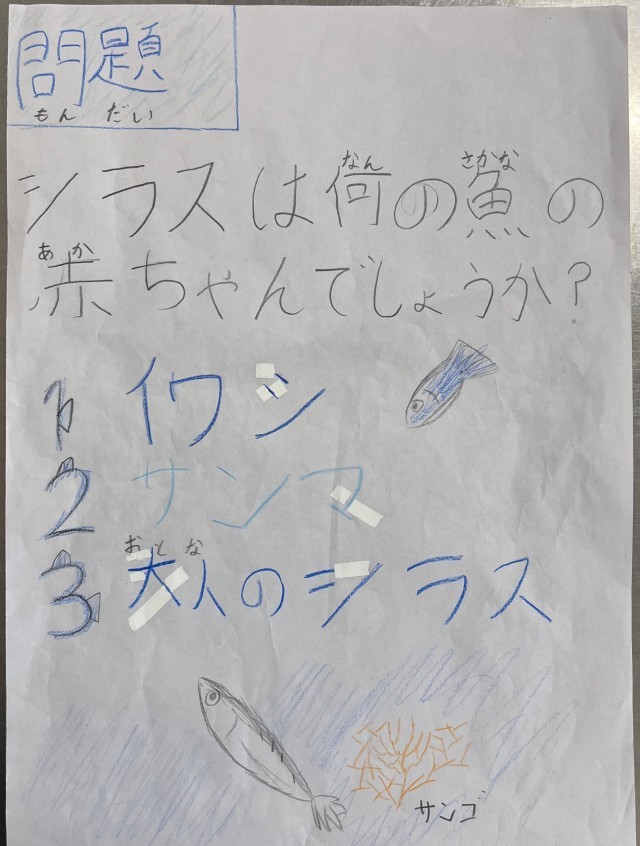 問題
もんだい
シラスは何の魚の
なん さかな
赤ちゃんでしょうか?
あか
1 イワシ
2 サンマ
3 大人のシラス
おとな
サンゴ